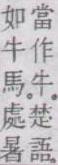 當作牛。楚語。
如牛馬。處暑